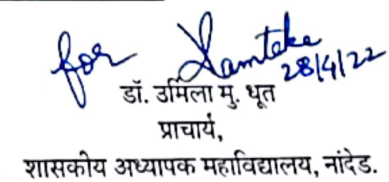 for Kamteke
28/4/22
डॉ. उर्मिला मु. धूत
प्राचार्य,
शासकीय अध्यापक महाविद्यालय, नांदेड.